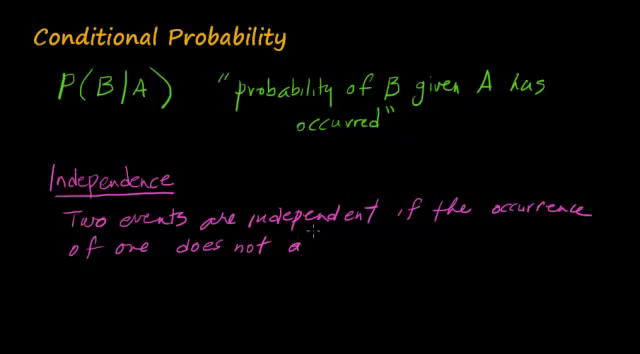 Conditional Probability
P(B|A) "probability of B given A has
occurred"
Independence
Two events are independent if the occurrence
of one does not a